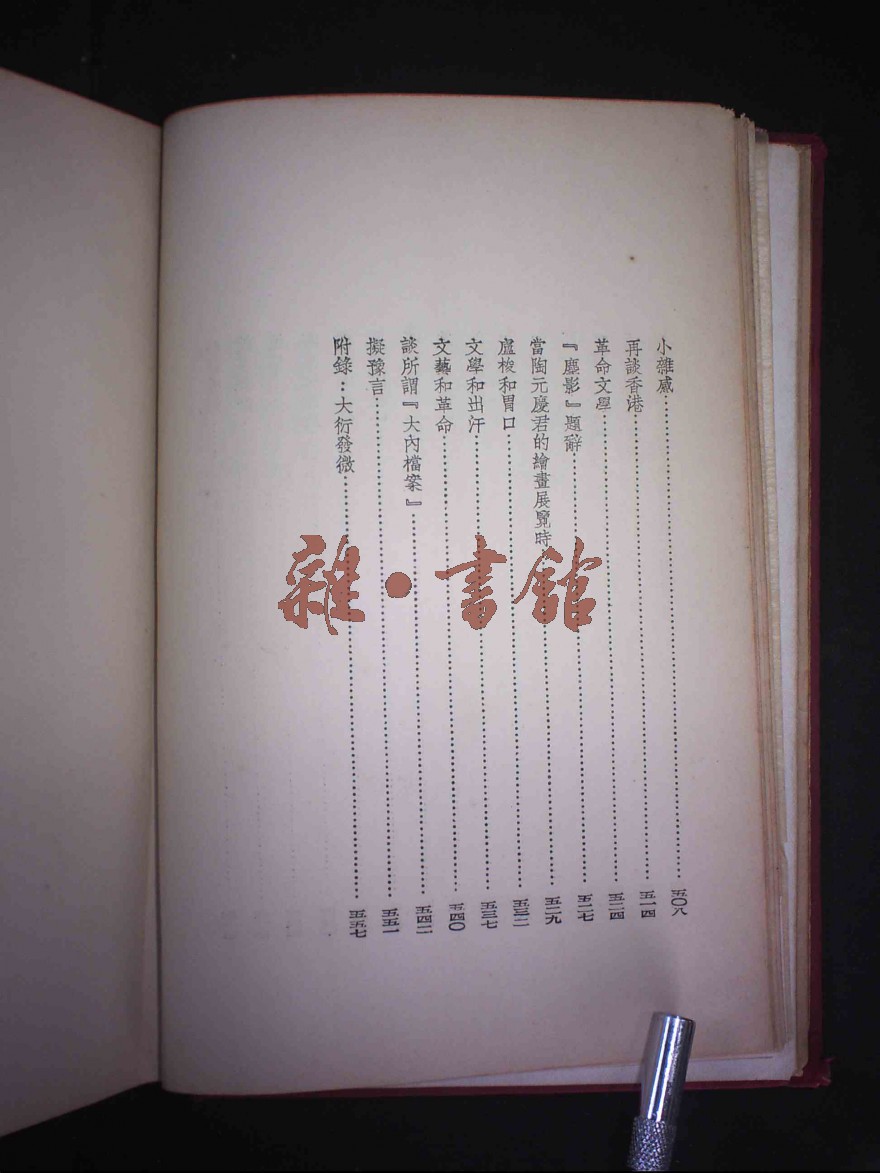 小雜感…………五〇八
再談香港…………五一四
革命文學…………五二四
『塵影』題辭…………五二七
當陶元慶君的繪畫展覽時…………五二九
盧梭和胃口…………五三二
文學和出汗…………五三七
文藝和革命…………五四〇
談所謂『大內檔案』…………五四二
擬豫言…………五五一
附錄：大衍發微…………五五七
雜·書館